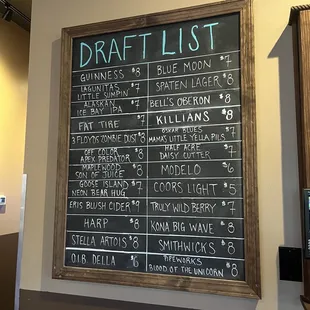 DRAFT LIST
GUINNESS $8
LAGUNITAS $7
LITTLE SUMPIN
ALASKAN $7
ICY BAY IPA
FAT TIRE $7
3 FLOYDS ZOMBIE DUST $8
OFF COLOR $8
APEX PREDATOR
MAPLEWOOD $8
SON OF JUICE
GOOSE ISLAND $7
NEON BEER HUG
ERIS BLUSH CIDER $9
HARP $8
STELLA ARTOIS $8
O.I.B. DELLA $6
BLUE MOON $7
SPATEN LAGER $8
BELL'S OBERON $8
KILLIANS $8
OSKAR BLUES $7
MAMA'S LITTLE YELLA PILS
HALF ACRE $7
DAISY CUTTER
MODELO $6
COORS LIGHT $5
TRULY WILD BERRY $7
KONA BIG WAVE $8
SMITHWICKS $8
PIPEWORKS
BLOOD OF THE UNICORN $8